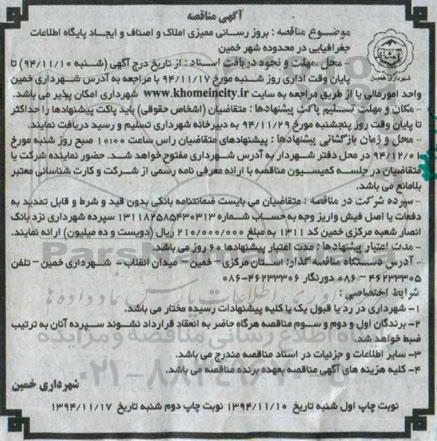 آگهی مناقصه
موضوع مناقصه : بروز رسانی ممیزی املاک و اصناف و ایجاد پایگاه اطلاعات
جغرافیایی در محدوده شهر خمین
- محل،مهلت و نحوه دریافت اسناد : از تاریخ درج آگهی (شنبه ۹۴/۱۱/۱۰) تا
پایان وقت اداری روز شنبه مورخ ۹۴/۱۱/۱۷ با مراجعه به آدرس شهرداری خمین
واحد امورمالی یا از طریق مراجعه به سایت www.khomeincity.ir شهرداری امکان پذیر می باشد.
- مکان و مهلت تسلیم پاکت پیشنهادها : متقاضیان (اشخاص حقوقی) باید پاکت پیشنهادها را حداکثر
تا پایان وقت روز پنجشنبه مورخ ۹۴/۱۱/۲۹ به دبیرخانه شهرداری تسلیم و رسید دریافت نمایند.
- محل و زمان بازگشائی پیشنهادها : پیشنهادهای متقاضیان راس ساعت ۱۰:۰۰ صبح روز شنبه مورخ
۹۴/۱۲/۰۱ در محل دفتر شهردار به آدرس شهرداری مفتوح خواهد شد. حضور نماینده شرکت یا
متقاضیان در جلسه کمیسیون مناقصه با ارائه معرفی نامه رسمی از شرکت و کارت شناسائی معتبر
بلامانع می باشد.
- سپرده شرکت در مناقصه : متقاضیان می بایست ضمانتنامه بانکی بدون قید و شرط و قابل تمدید به
دفعات یا اصل فیش واریز وجه به حساب شماره ۱۳۱۱۸۲۵۸۵۴۳۰۳۱۳ سپرده شهرداری نزد بانک
انصار شعبه مرکزی خمین کد ۱۳۱۱ به مبلغ ۲۱۰/۰۰۰/۰۰۰ ریال (دویست و ده میلیون) ارائه نمایند.
- مدت اعتبار پیشنهادها : مدت اعتبار پیشنهادها ۶۰ روز می باشد.
- آدرس دستگاه مناقصه گذار: استان مرکزی - خمین - میدان انقلاب - شهرداری خمین - تلفن
۴۶۲۳۳۳۰۵ - ۰۸۶ دورنگار ۴۶۲۳۳۳۰۶-۰۸۶
شرایط اختصاصی :
۱- شهرداری در رد یا قبول یک یا کلیه پیشنهادات رسیده مختار می باشد.
۲- برندگان اول و دوم و سوم مناقصه هرگاه حاضر به انعقاد قرارداد نشوند سپرده آنان به ترتیب
ضبط خواهد شد.
۳- سایر اطلاعات و جزئیات در اسناد مناقصه مندرج می باشد.
۴- کلیه هزینه های آگهی مناقصه بعهده برنده مناقصه می باشد.
شهرداری خمین
نوبت چاپ اول شنبه تاریخ ۱۳۹۴/۱۱/۱۰ نوبت چاپ دوم شنبه تاریخ ۱۳۹۴/۱۱/۱۷